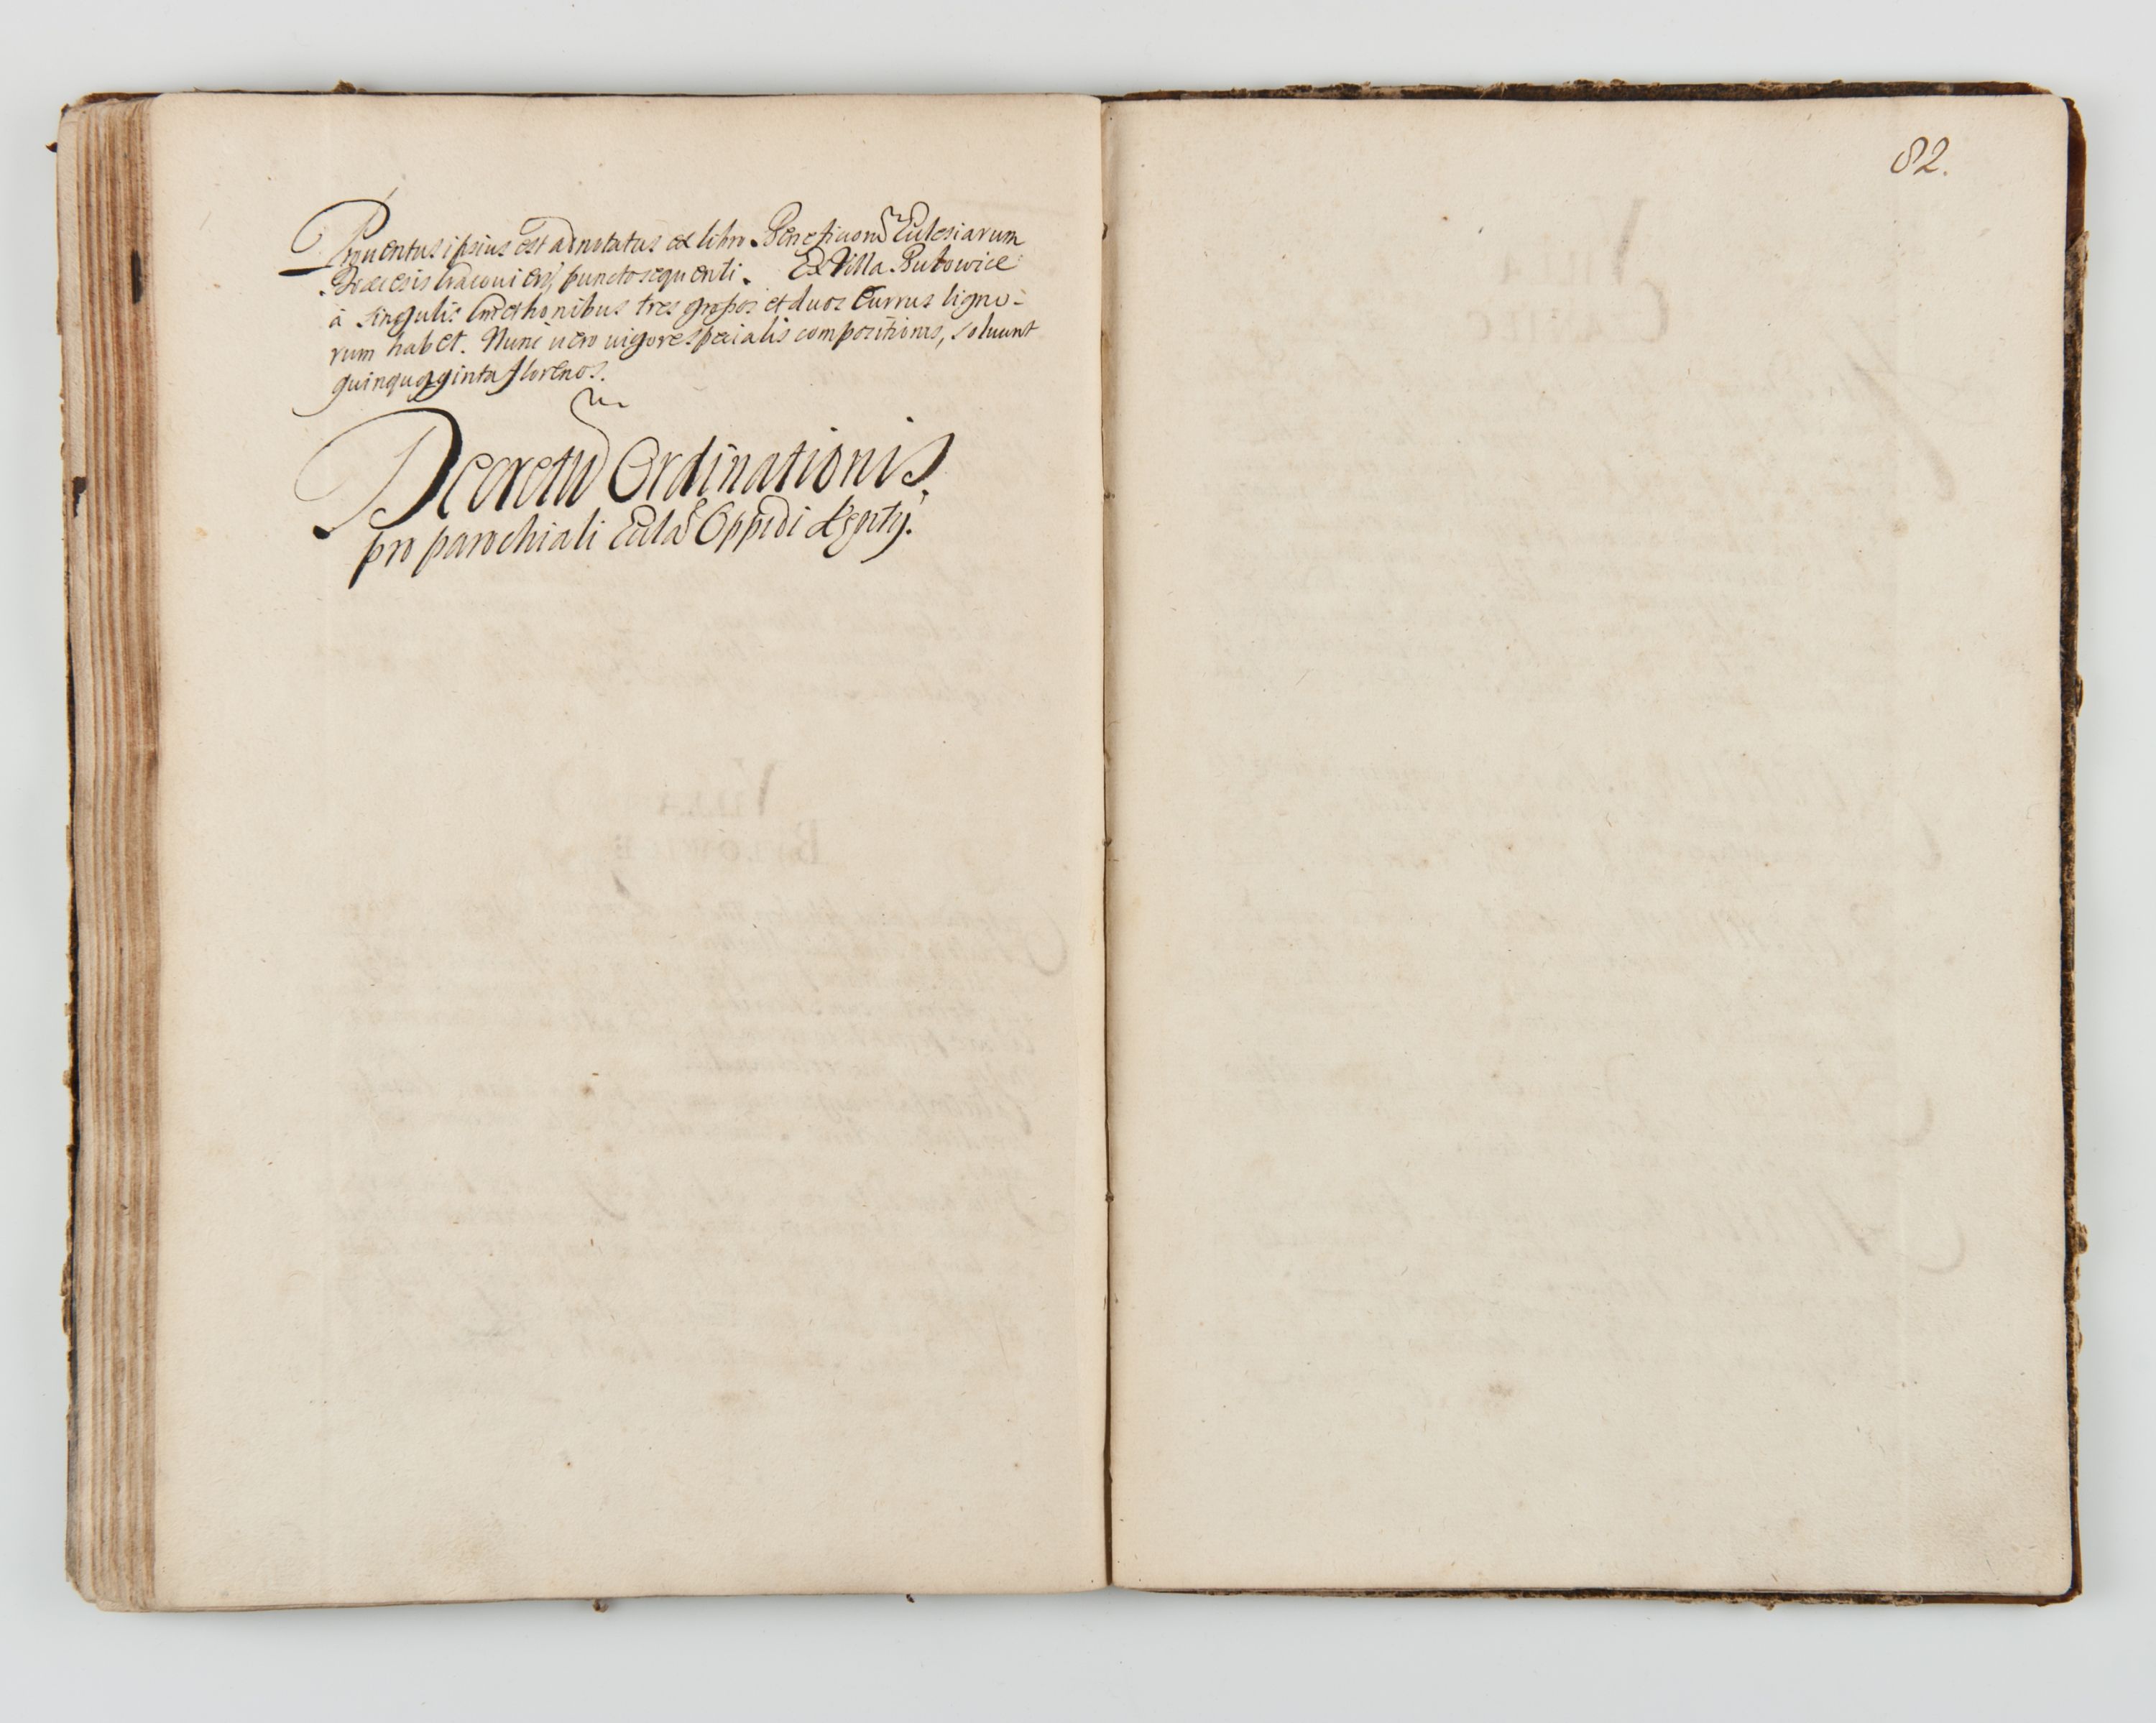 Prouentus ipsius est adnotatus ex libro Beneficiorũ Ecclesiarum
Diœcesis Cracouien, puncto sequenti. Ex Villa Butowice
à singulis Cmethonibus tres grossos et duos Currus ligno-
rum habet. Nunc uero uigore specialis compositionis, soluunt
quinquaginta florenos.
Decretũ Ordinationis
pro parochiali Eccla Oppidi
82.